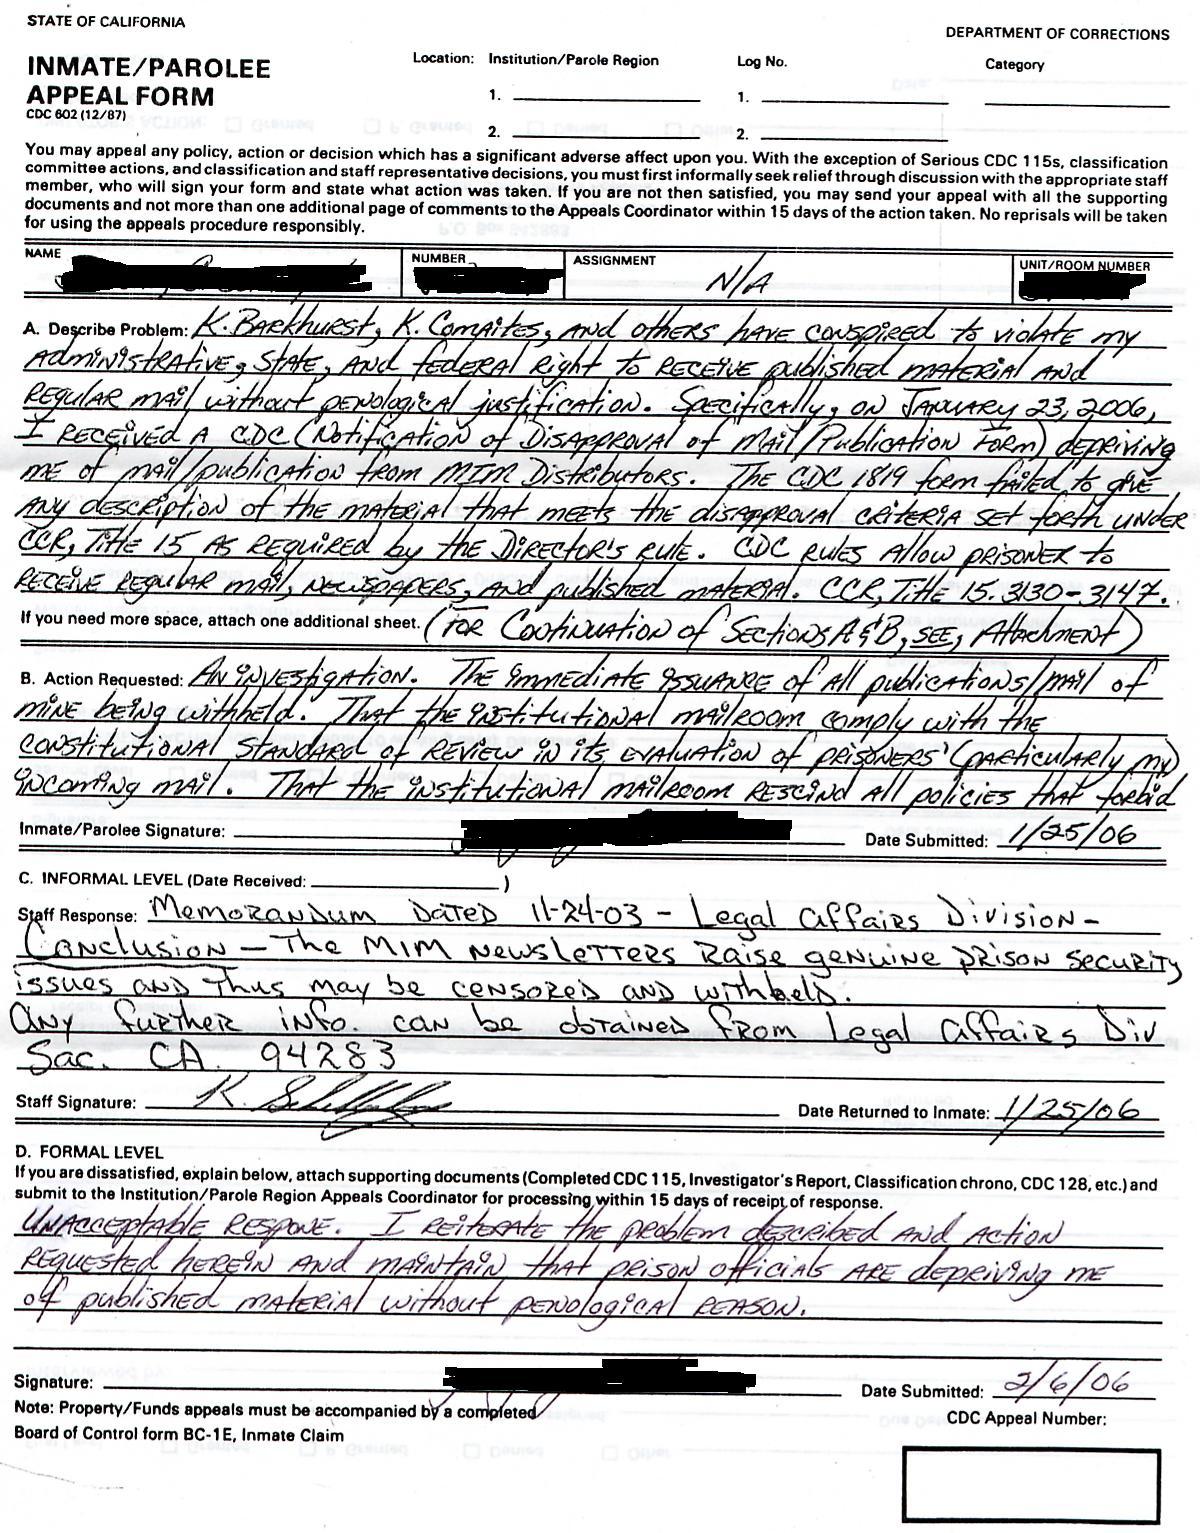 STATE OF CALIFORNIA
DEPARTMENT OF CORRECTIONS
INMATE/PAROLEE
APPEAL FORM
CDC 602 (12/87)
Location: Institution/Parole Region Log No. Category
1. 1.
2. 2.
You may appeal any policy, action or decision which has a significant adverse affect upon you. With the exception of Serious CDC 115s, classification
committee actions, and classification and staff representative decisions, you must first informally seek relief through discussion with the appropriate staff
member, who will sign your form and state what action was taken. If you are not then satisfied, you may send your appeal with all the supporting
documents and not more than one additional page of comments to the Appeals Coordinator within 15 days of the action taken. No reprisals will be taken
for using the appeals procedure responsibly.
NAME NUMBER ASSIGNMENT UNIT/ROOM NUMBER
N/A
A. Describe Problem: K. Barkhurst, K. Comaites, and others have conspired to violate my
administrative, state, and federal right to receive published material and
regular mail, without penological justification. Specifically, on January 23, 2006,
I received a CDC (Notification of Disapproval of Mail/Publication Form) depriving
me of mail/publication from MIM Distributors. The CDC 1819 form failed to give
any description of the material that meets the disapproval criteria set forth under
CCR, Title 15 as required by the Director's rule. CDC rules allow prisoner to
receive regular mail, newspapers, and published material. CCR, Title 15. 3130-3147.
If you need more space, attach one additional sheet. (For Continuation of Sections A & B, see, Attachment)
B. Action Requested: An investigation. The immediate issuance of all publications/mail of
mine being withheld. That the institutional mailroom comply with the
constitutional standard of review in its evaluation of prisoners' (particularly my)
incoming mail. That the institutional mailroom rescind all policies that forbid
Inmate/Parolee Signature: Date Submitted: 1/25/06
C. INFORMAL LEVEL (Date Received: )
Staff Response: Memorandum Dated 11-24-03 - Legal Affairs Division -
Conclusion - The MIM newsletters raise genuine prison security
issues and thus may be censored and withheld.
Any further info. can be obtained from Legal Affairs Div
Sac. CA. 94283
Staff Signature: Date Returned to Inmate: 1/25/06
D. FORMAL LEVEL
If you are dissatisfied, explain below, attach supporting documents (Completed CDC 115, Investigator's Report, Classification chrono, CDC 128, etc.) and
submit to the Institution/Parole Region Appeals Coordinator for processing within 15 days of receipt of response.
Unacceptable respone. I reiterate the problem described and action
requested herein and maintain that prison officials are depriving me
of published material without penological reason.
Signature: Date Submitted: 2/6/06
Note: Property/Funds appeals must be accompanied by a completed
CDC Appeal Number:
Board of Control form BC-1E, Inmate Claim